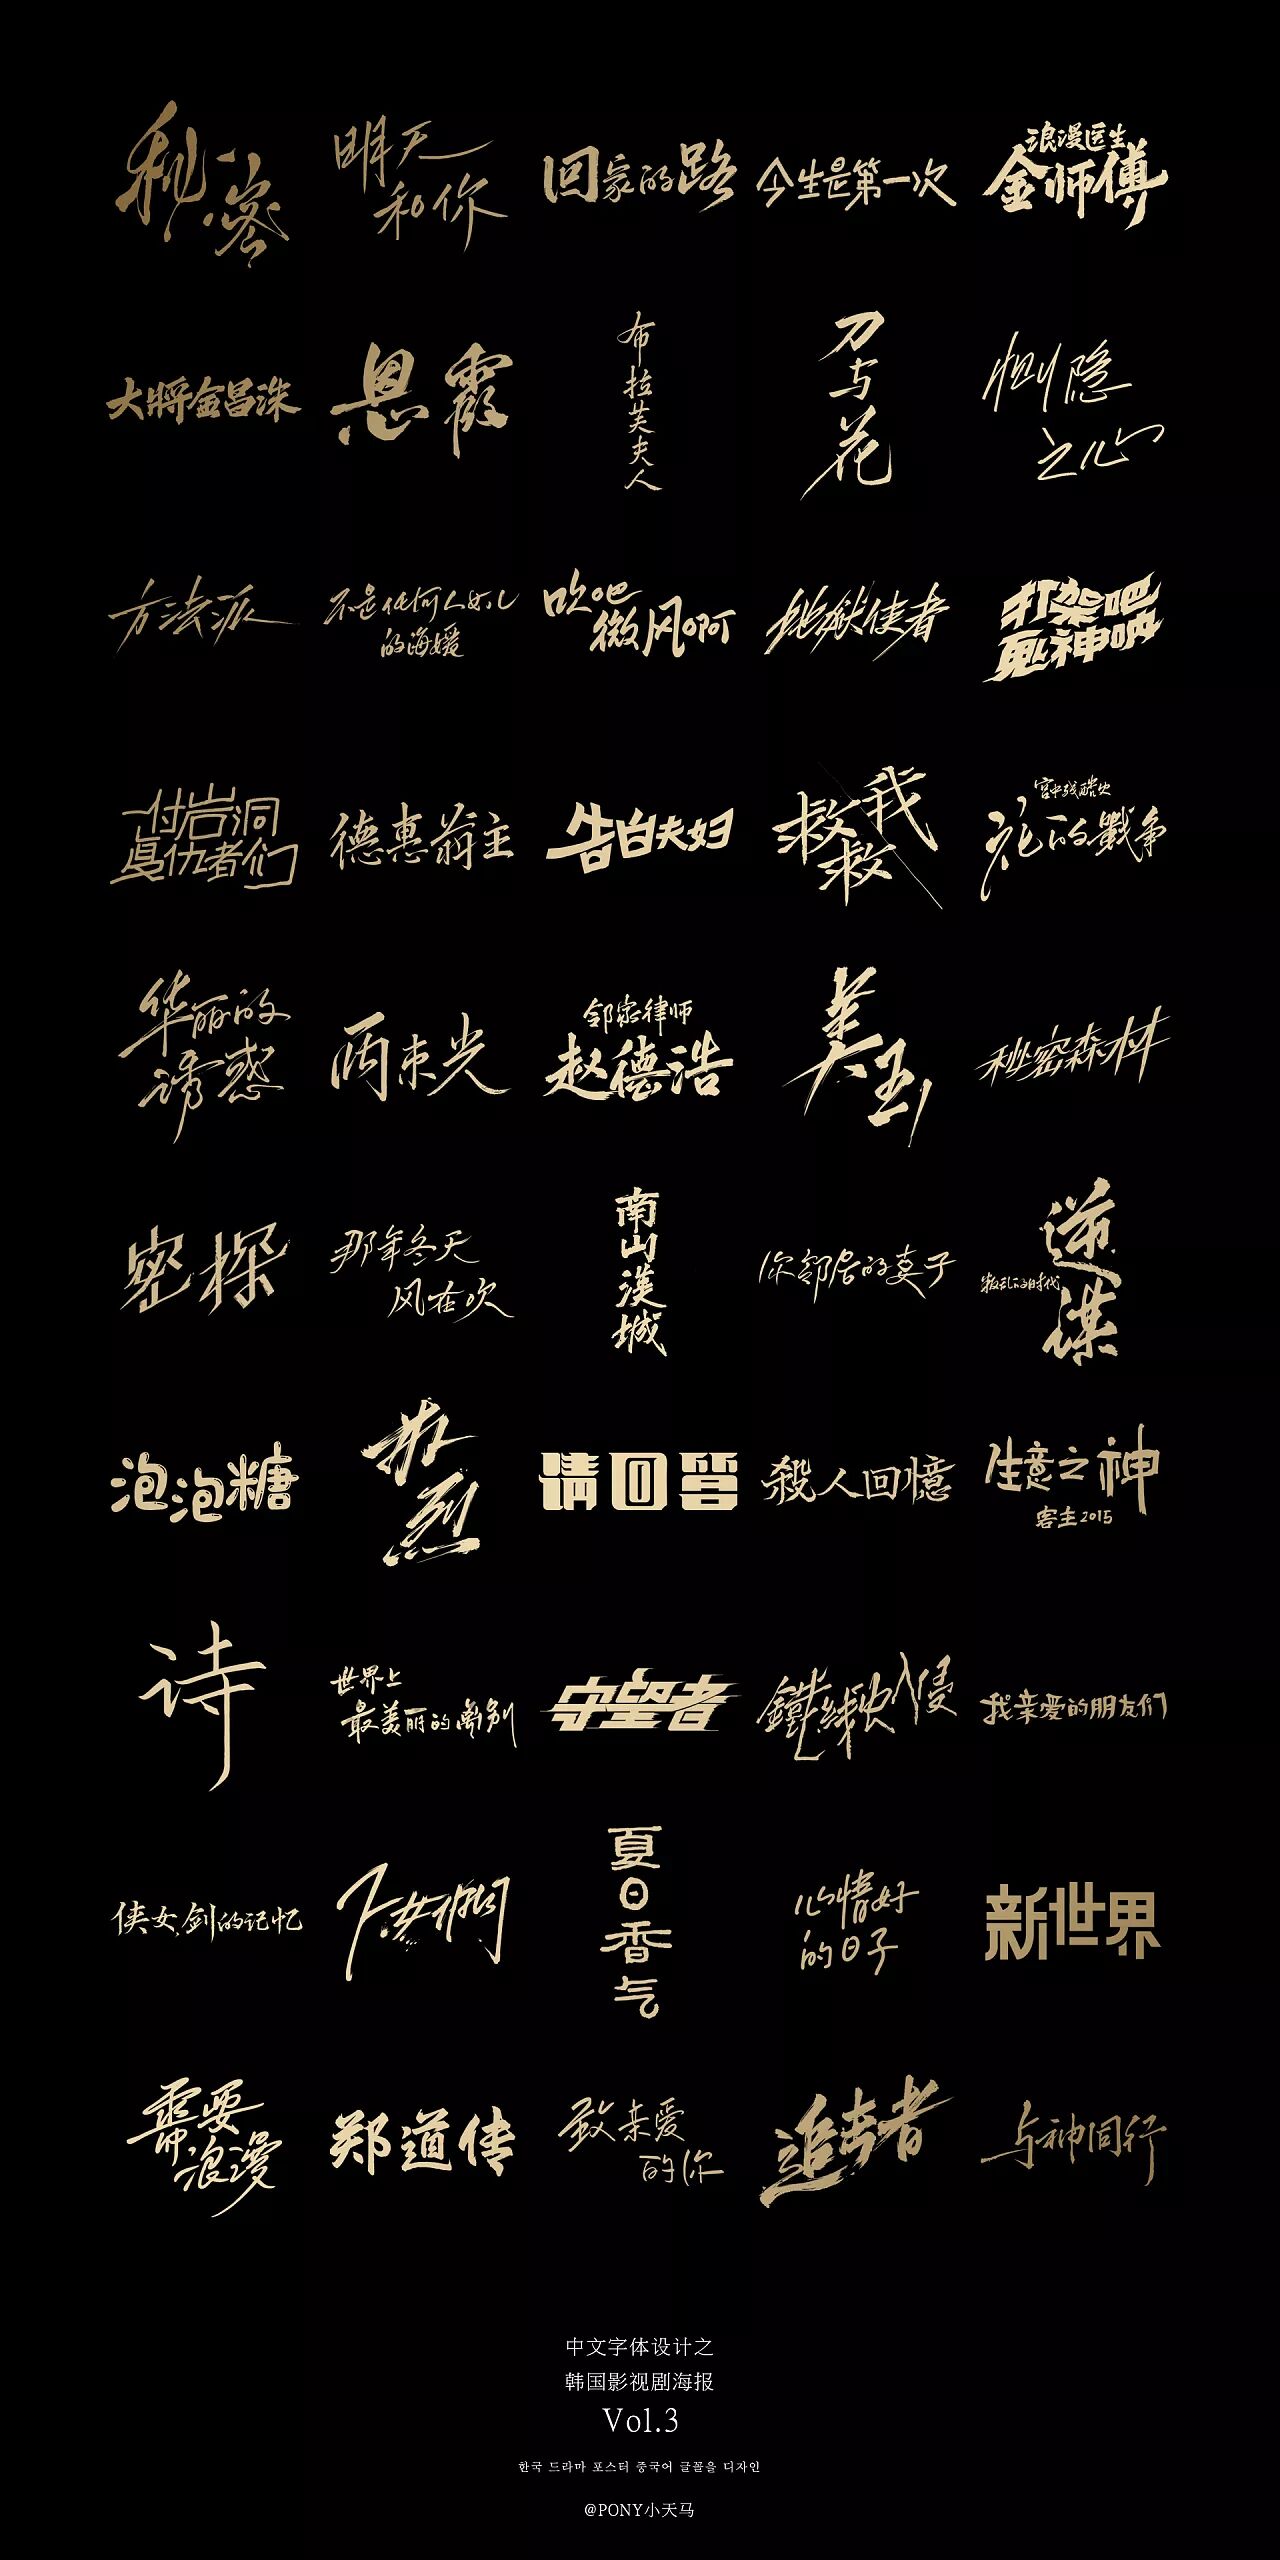 秘密
明天
和你
回家的路
今生是第一次
浪漫医生
金师傅
大將金昌洙
恩霞
布拉芙夫人
刀与花
恻隐
之心
方法派
不是任何人女儿
的海媛
吹吧
微风啊
地狱使者
打架吧
鬼神啊
付岩洞
复仇者们
德惠翁主
告白夫妇
救救我
宫中残酷史
花的戰争
华丽的
诱惑
两束光
邻家律师
赵德浩
美玉
秘密森林
密探
那年冬天
风在吹
南山漢城
你邻居的妻子
逆谋
叛乱的时代
泡泡糖
朴烈
请回答
殺人回憶
生意之神
客主2015
诗
世界上
最美丽的离别
守望者
鐵线虫入侵
我亲爱的朋友们
侠女,剑的记忆
下女们
夏日香气
心情好
的日子
新世界
需要
浪漫
郑道传
致亲爱
的你
追击者
与神同行
中文字体设计之
韩国影视剧海报
Vol.3
한국 드라마 포스터 중국어 글꼴을 디자인
@PONY小天马